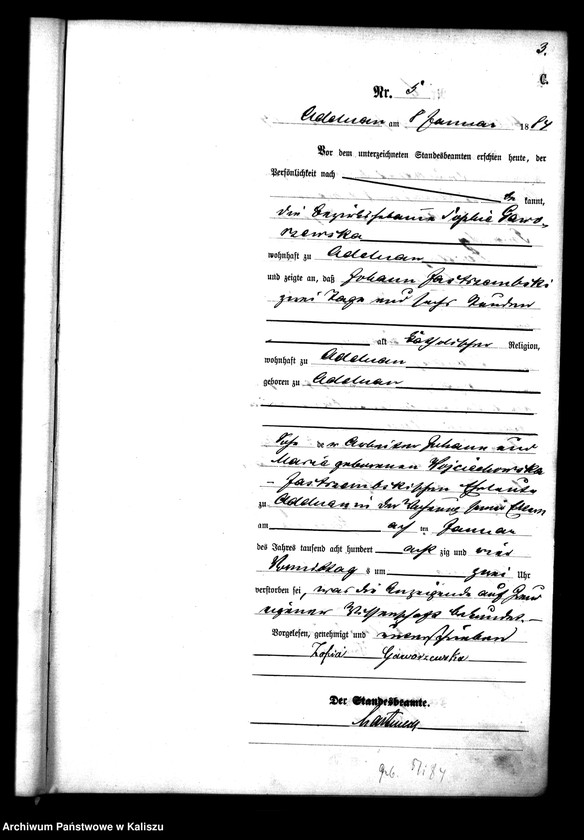 3.
C.
Nr. 5
Adelnau am 8 Januar 1884
Vor dem unterzeichneten Standesbeamten erschien heute, der
Persönlichkeit nach
be kannt,
die Bezirkshebamme Sophia Gawo-
rzewska
wohnhaft zu Adelnau
und zeigte an, daß Johann Jastrzembski
zwei Tage und sechs Stunden
alt katholischer Religion,
wohnhaft zu Adelnau
geboren zu Adelnau
Sohn der Arbeiter Johann und
Maria geborenen Wojciechowska
- Jastrzembskischen Eheleute
zu Adelnau in der Wohnung seiner Eltern
am acht ten Januar
des Jahres tausend acht hundert acht zig und vier
Vormittag s um zwei Uhr
verstorben sei, was die Anzeigende aus
eigener Wissenschaft bekundet.
Vorgelesen, genehmigt und unterschrieben
Zofia Gaworzewska
Der Standesbeamte.
geb. 5/1 84
Archiwum Państwowe w Kaliszu